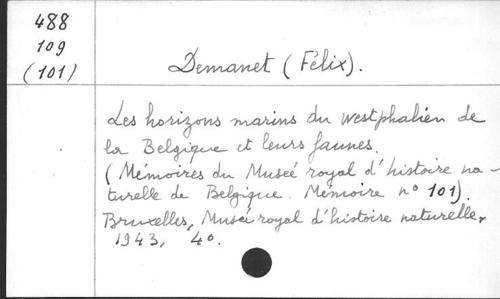 488
109
(101)
Demanet (Félix).
Les horizons marins du westphalien de
la Belgique et leurs faunes.
(Mémoires du Museé royal d'histoire na-
turelle de Belgique. Mémoire nº 101).
Bruxelles, Museé royal d'histoire naturelle,
1943, 4º.